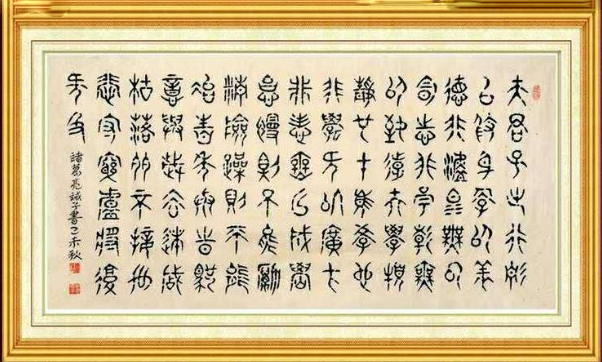 夫君子之行静
以修身儉以養
德非澹泊無以
明志非寧静無
以致遠夫學須
静也才須學也
非學無以廣才
非志無以成學
慆慢則不能勵
精險躁則不能
冶性年與時馳
意與歲去遂成
枯落多不接世
悲守窮廬將復
何及
諸葛亮誡子書乙未秋